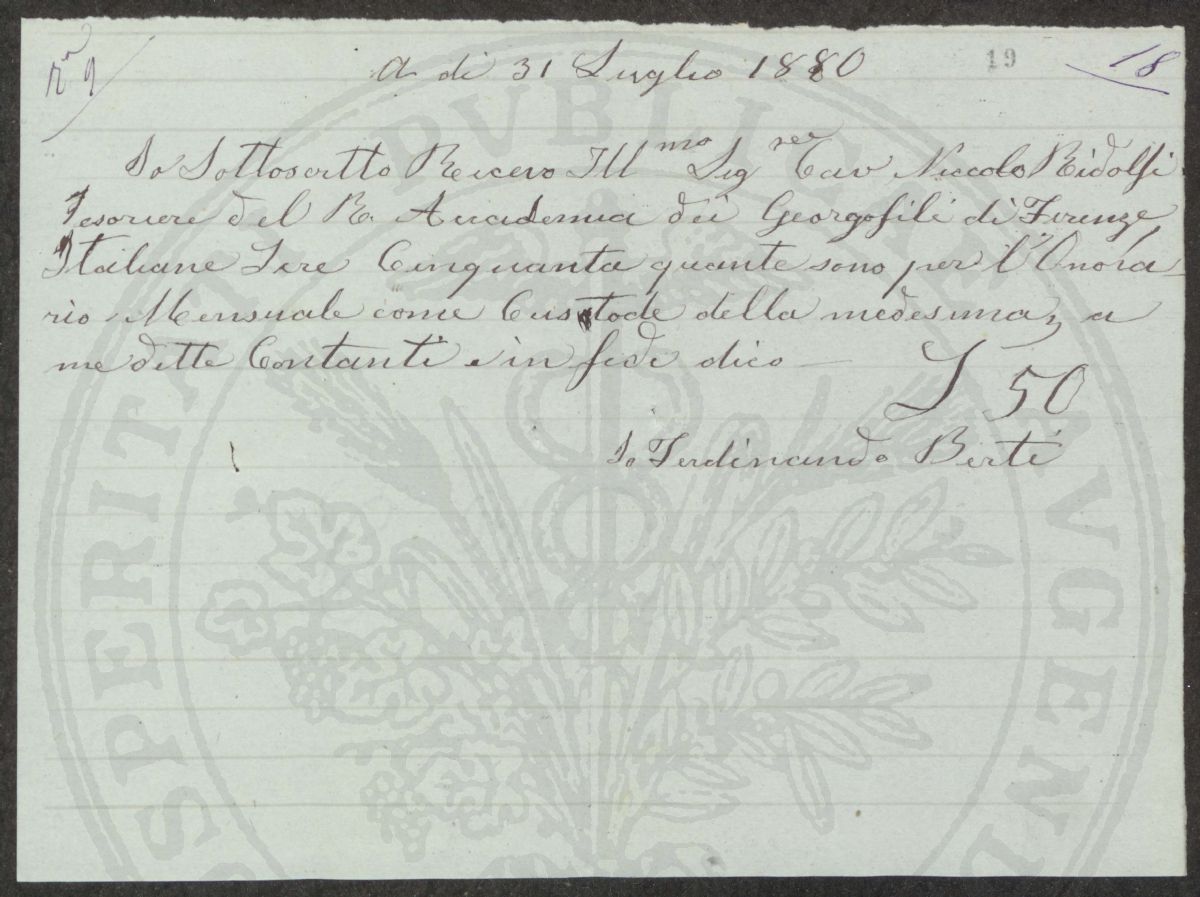 N° 9
A di 31 Luglio 1880
19
18
Io Sottoscritto Ricevo Ill mo Sig re Cav Niccolo Ridolfi
Tesoriere del R. Accademia dei Georgofili di Firenze
Italiane Lire Cinquanta quante sono per l'Onora
rio Mensuale come Custode della medesima, a
me ditte Contanti e in fede dico
L 50
Io Ferdinando Berti
PROSPERITATI PVBLICAE AVGENDAE